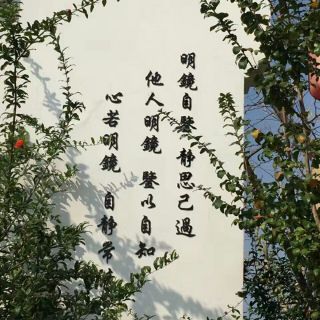 明鏡自鑒 靜思己過
他人明鏡 鑒以自知
心若明鏡 自靜常